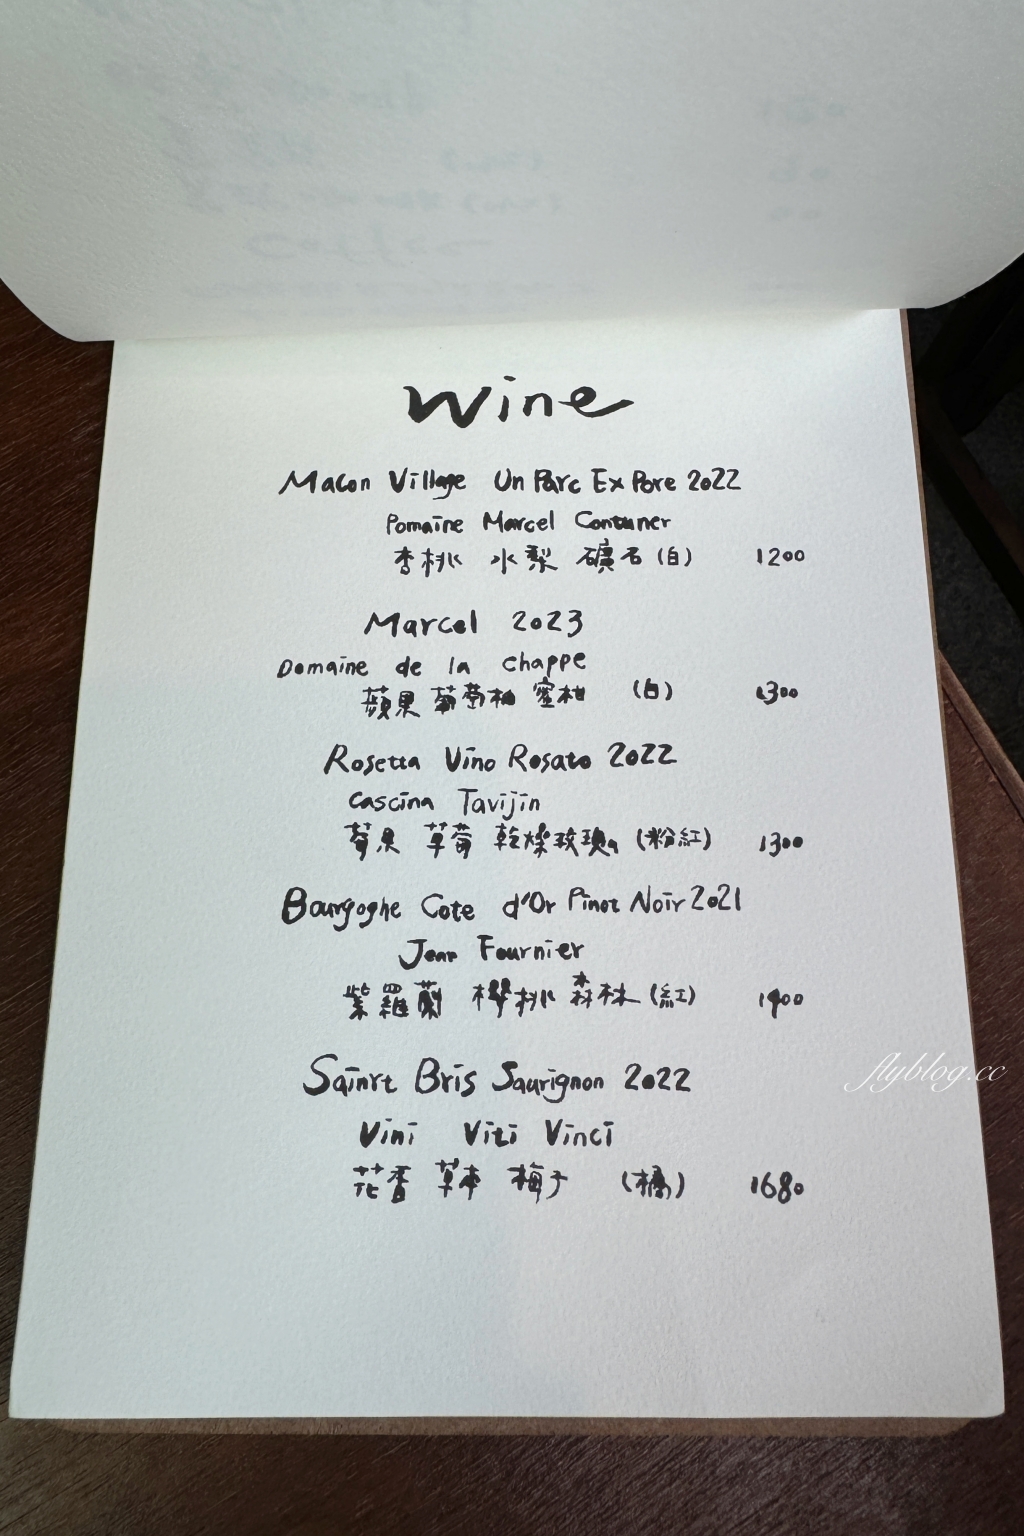 Wine
Macon Village Un Parc Ex Pore 2022
Pomaine Marcel Contuner
杏桃 水梨 礦石(白) 1200
Marcel 2023
Domaine de la chappe
蘋果 葡萄柚 蜜柑 (白) 1300
Rosetta Vino Rosato 2022
Cascina Tavijin
莓果 草莓 乾燥玫瑰 (粉紅) 1300
Bourgoghe Cote d'Or Pinot Noir 2021
Jean Fournier
紫羅蘭 櫻桃 森林(紅) 1900
Sainrt Bris Sauvignon 2022
Vini Viti Vinci
花香 草本 梅子 (橘) 1680
flyblog.cc